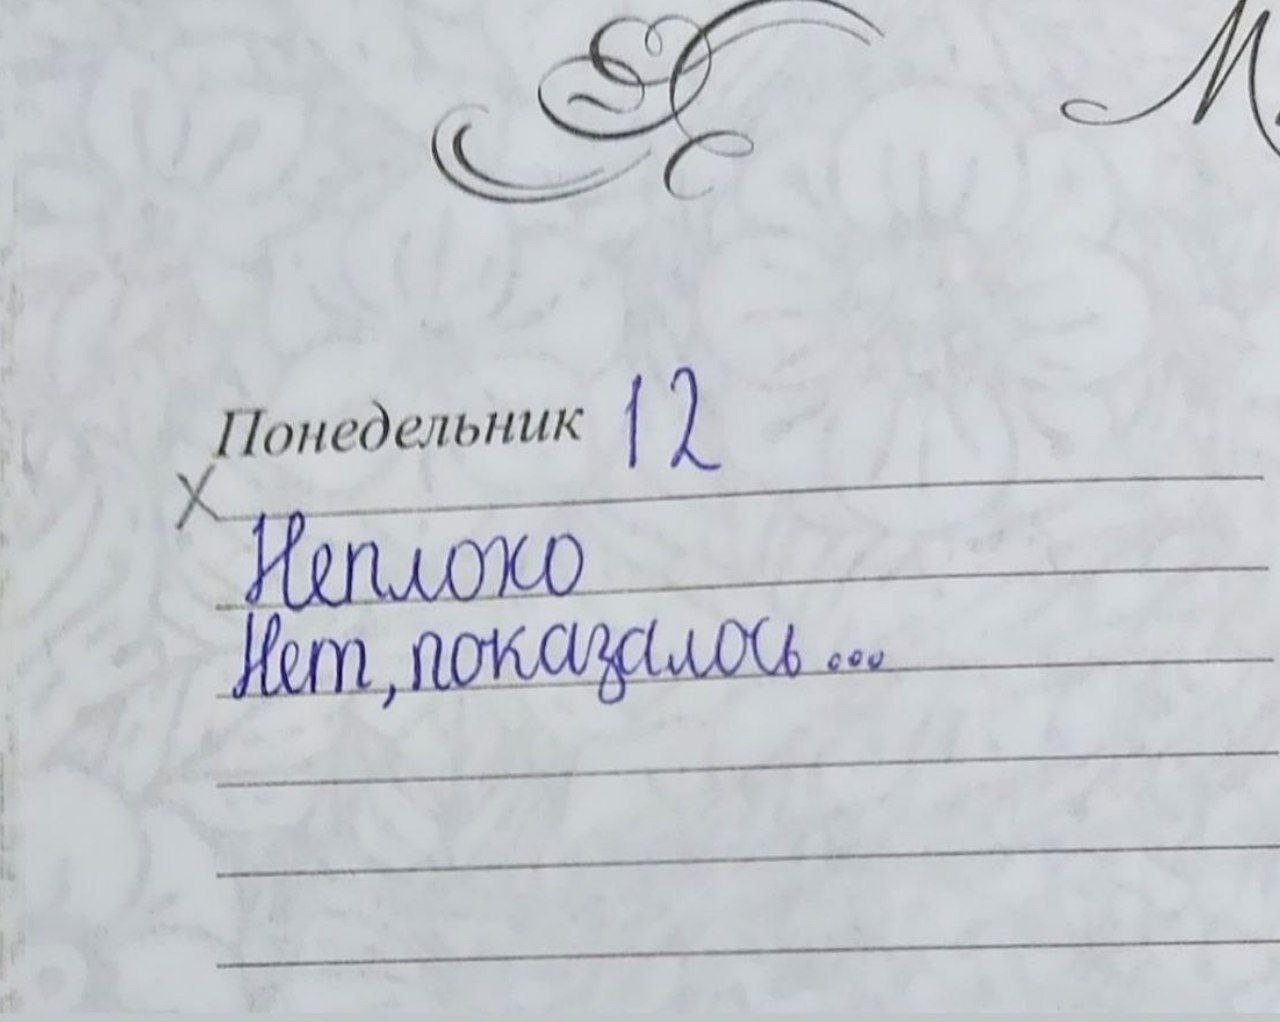 М
Понедельник 12
Х
Неплохо
Нет, показалось...